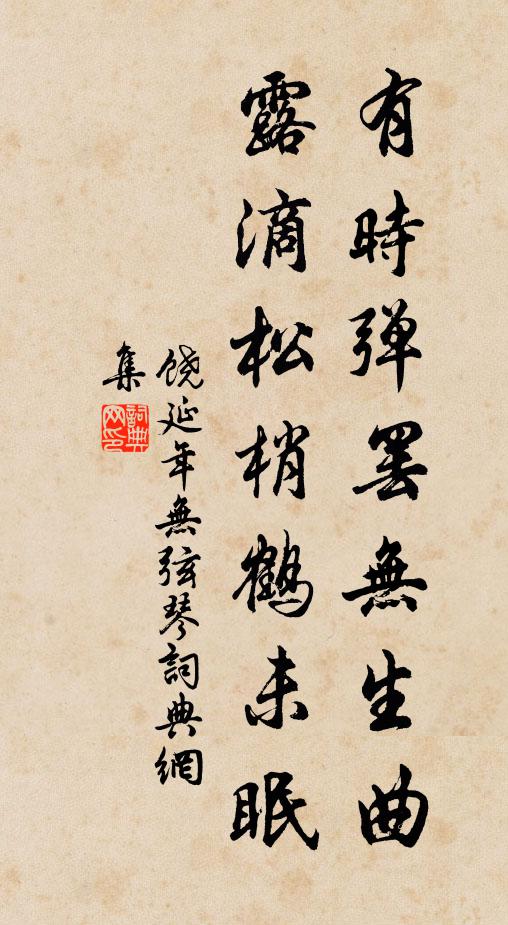 有時弹罢無生曲
露滴松梢鶴未眠
饶延年無弦琴詞典網
集
詞典网印